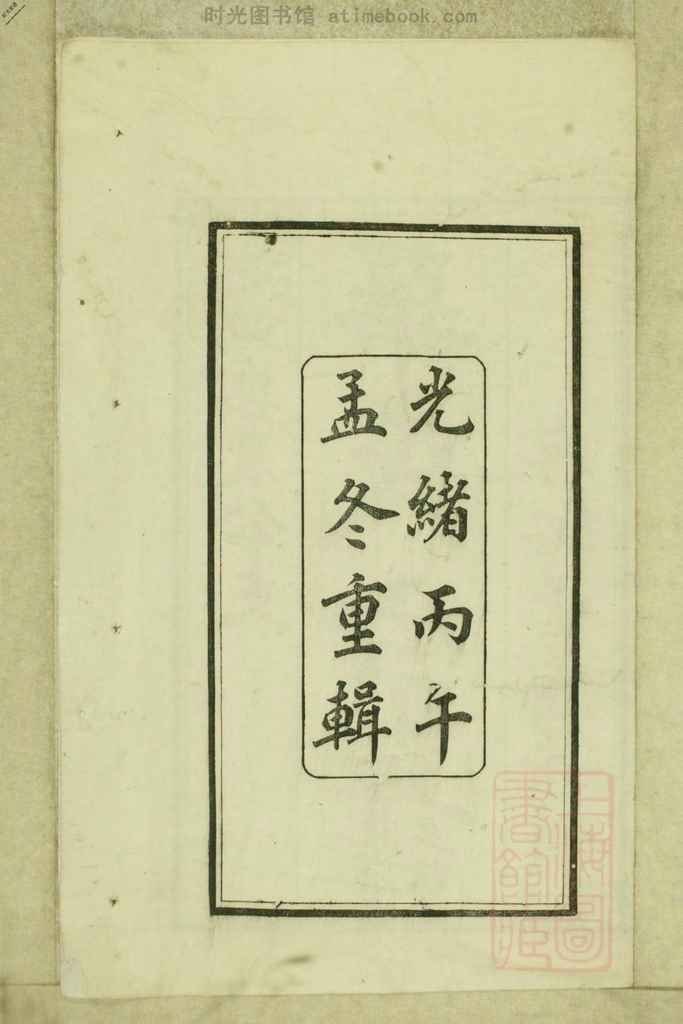 时光图书馆 atimebook.com
光緒丙午
孟冬重輯
上海圖
書館藏